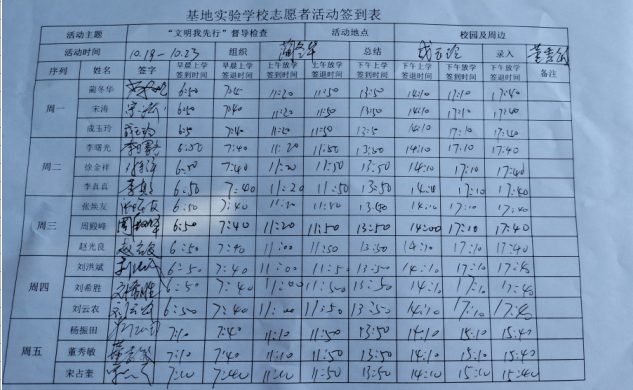 基地实验学校志愿者活动签到表
活动主题 "文明我先行"督导检查 活动地点 校园及周边
活动时间 10.19-10.23 组织 蔺冬华 总结 成玉玲 录入 董秀敏
序列 姓名 签字 早晨上学签到时间 早晨上学签退时间 上午放学签到时间 上午放学签退时间 下午上学签到时间 下午上学签退时间 下午放学签到时间 下午放学签退时间 备注
周一 蔺冬华 6:50 7:45 11:20 11:50 13:50 14:10 17:10 17:40
宋涛 宋涛 6:50 7:40 11:20 11:50 13:50 14:10 17:10 17:40
成玉玲 成玉玲 6:5 7:40 11:20 11:50 13:5 14:10 17:10 17:40
周二 李曙光 6:50 7:40 11:20 11:50 13:50 14:10 17:10 17:40
徐金祥 6:50 7:40 11:20 11:50 13:50 14:10 17:10 17:40
李真真 6:50 7:40 11:20 11:50 13:50 14:10 17:10 17:40
周三 张焕友 6:50 7:40 11:20 11:50 13:50 14:10 17:10 17:40
周殿峰 周殿峰 6:50 7:40 11:20 11:50 13:50 14:00 17:10 17:40
赵光良 6:50 7:40 11:00 11:50 13:50 14:10 17:10 17:40
周四 刘洪斌 6:50 7:40 11:00 11:50 13:50 14:10 17:10 17:40
刘希胜 6:50 7:40 11:00 11:50 13:50 14:10 17:10 17:40
刘云农 6:50 7:40 11:00 11:50 13:50 14:10 17:10 17:40
周五 杨振田 7:10 7:40 11:10 11:50 13:50 14:10 15:10 15:40
董秀敏 董秀敏 7:10 7:40 11:10 11:50 13:50 14:10 15:10 15:40
宋占奎 7:10 7:40 11:10 11:50 13:50 14:10 15:10 15:40